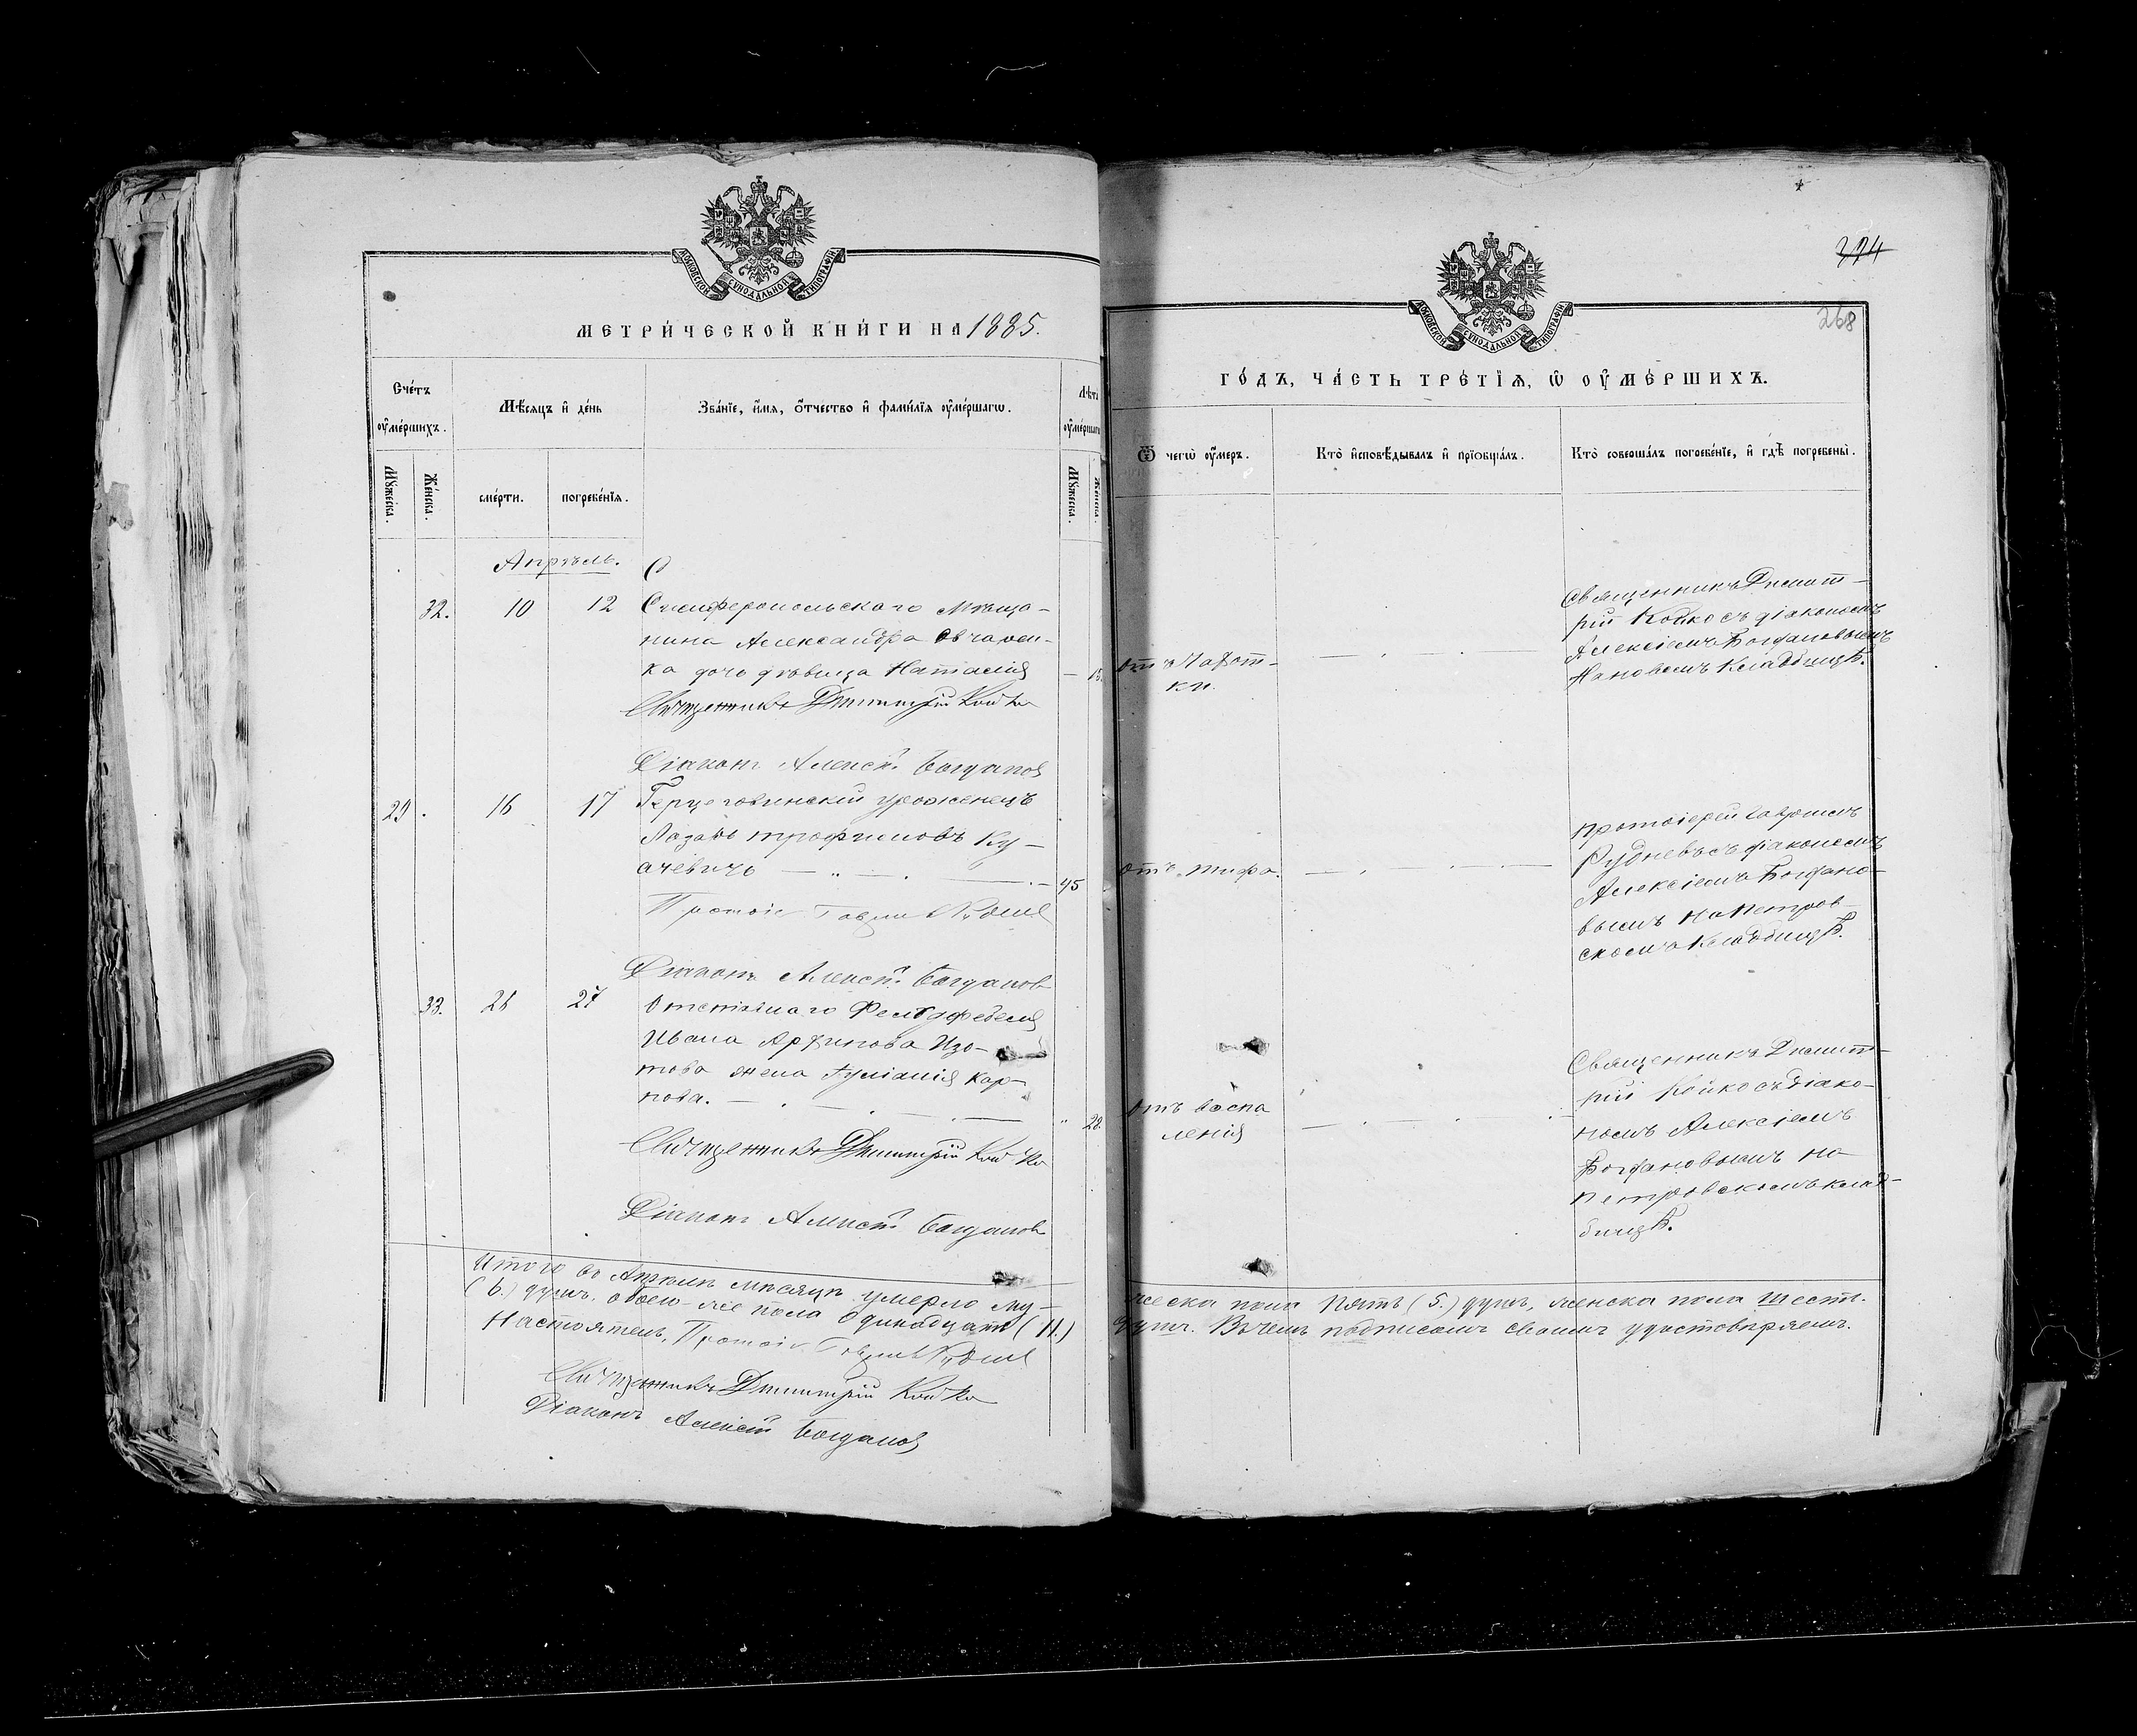 МОСКОВСКОЙ СѴНОДАЛЬНОЙ ТИПОГРАФІИ
МЕТРИ́ЧЕСКОЙ КНИ́ГИ НА 1885.
Сче́тъ ᲂу҆ме́ршихъ.
Мѣ́сяцъ и҆ де́нь
Зва́нїе, и҆́мя, ѻ҆́тчество и҆ фами́лїя ᲂу҆ме́ршагѡ.
Лѣта ᲂу҆ме́ршагѡ
Мꙋ́жеска.
Же́нска.
сме́рти.
погребе́нїя.
Мꙋ́жеска.
Же́нска.
Апрѣль.
32.
10
12
Симферопольскаго Мѣща-
нина Александра Овчарен-
ка дочь дѣвица Наталія
— 15.
Священникъ Димитрій Койко
Діаконъ Алексѣй Богданов
29.
16
17
Герцеговинскій уроженецъ
Лазарь Трофимовъ Ку-
ачевичъ
45
Протоіе Гавріил Руднев
Діаконъ Алексѣй Богданов
33.
26
27
Отставнаго Фельдфебеля
Ивана Изо-
това жена Іуліанія Кар-
пова.
28.
Священникъ Димитрій Койко
Діаконъ Алексѣй Богданов
Итого въ Апрелѣ мѣсяцѣ умерло му-
(6.) душъ, обоего же пола одинадцать (11.)
Настоятель, Протоіе Гавріил Руднев
Священникъ Димитрій Койко
Діаконъ Алексѣй Богданов
374
268
МОСКОВСКОЙ СѴНОДАЛЬНОЙ ТИПОГРАФІИ
ГО́ДЪ, ЧА́СТЬ ТРЕ́ТЇЯ, Ѡ҆ ОУ҆МЕ́РШИХЪ.
Ѿ чегѡ̀ ᲂу҆́меръ.
Кто̀ и҆сповѣ́дывалъ и҆ прїѡбща́лъ.
Кто̀ соверша́лъ погребе́нїе, и҆ гдѣ̀ погребены̀.
Отъ Чахот-
ки.
Священникъ Димит-
рій Койко съ діакономъ
Алексіемъ Богдановымъ
На новомъ Кладбищѣ.
Отъ тифа.
Протоіерей Гавріилъ
Рудневъ съ діакономъ
Алексіемъ Богдано-
вымъ на Петров-
скомъ Кладбищѣ.
Отъ воспа
ленія
Священникъ Димит-
рій Койко съ діако-
номъ Алексіемъ
Богдановымъ на
Петровскомъ клад-
бищѣ.
жеска пола Пять (5.) душъ, женска пола шесть
душъ. Въ чемъ подписомъ своимъ удостовѣряемъ.